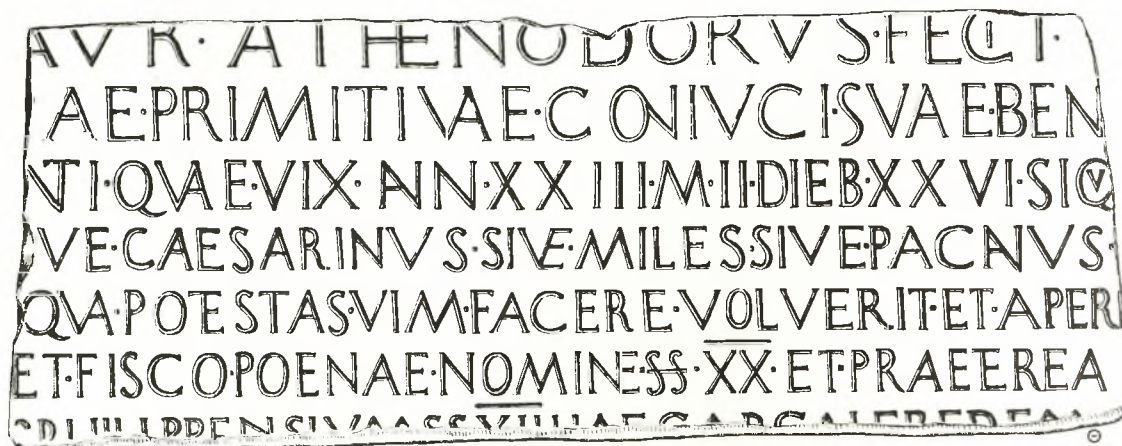 AVR·ATHENODORVS·FECIT·
AE·PRIMITIVAE·CONIVCI·SVAE·BEN
NTI·QVAE·VIX·ANN·XX III·M·II·DIEB·XXVI·SIQV
VE·CAESARINVS·SIVE·MILES·SIVE·PACNVS·
QVA·POTESTAS·VIM·FACERE·VOLVERIT·ET·APERI
ET·FISCO·POENAE·NOMINE·SS·XX·ET·PRAEEREA